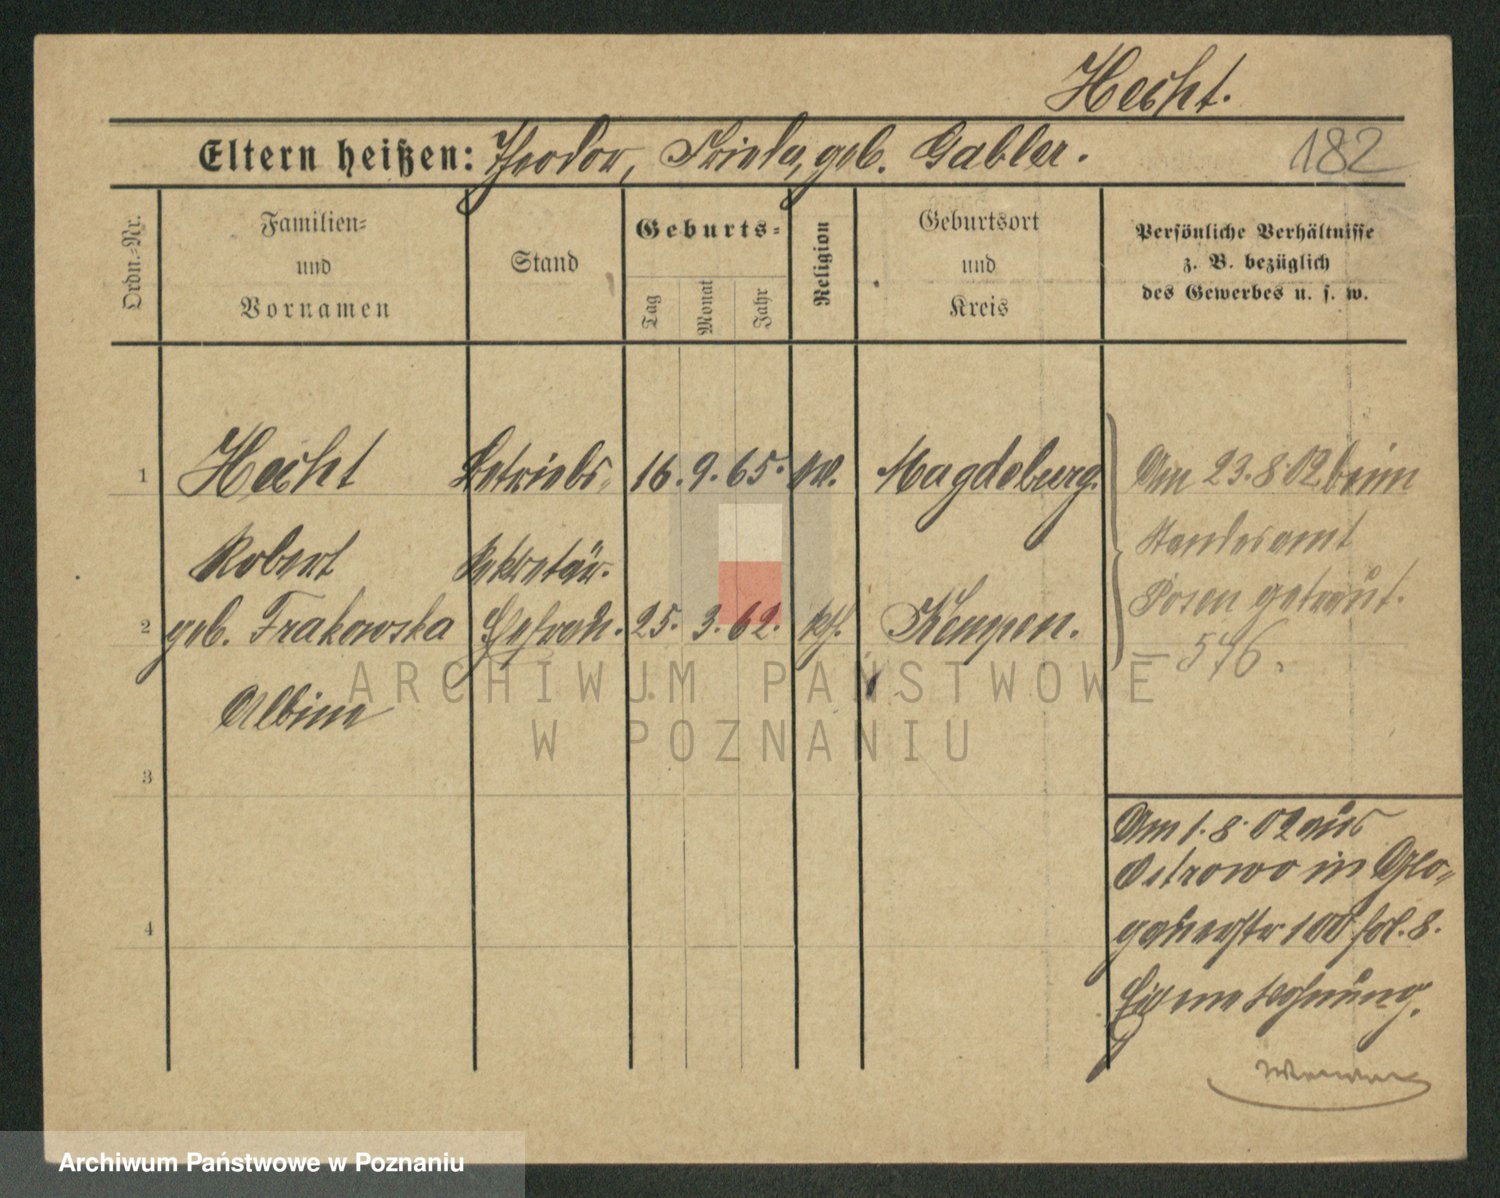 Hecht.
Eltern heißen: Theodor, Frieda, geb. Gabler.
182
Ordn.-Nr.
Familien-
und
Vornamen
Stand
Geburts-
Tag
Monat
Jahr
Religion
Geburtsort
und
Kreis
Persönliche Verhältnisse
z. B. bezüglich
des Gewerbes u. s. w.
1 Hecht Betriebs- 16. 9. 65. ev. Magdeburg.
Robert Sekretär.
2 geb. Frakowska Ehefrau. 25. 3. 62. kth. Kempen.
Albine
3
4
Am 23.8.02 beim
Standesamt
Posen getraut.
— 546.
Am 1. 8. 02 aus
Ostrowo in Glo-
gauerstr 100
Wohnung.
ARCHIWUM PAŃSTWOWE
W POZNANIU
Archiwum Państwowe w Poznaniu